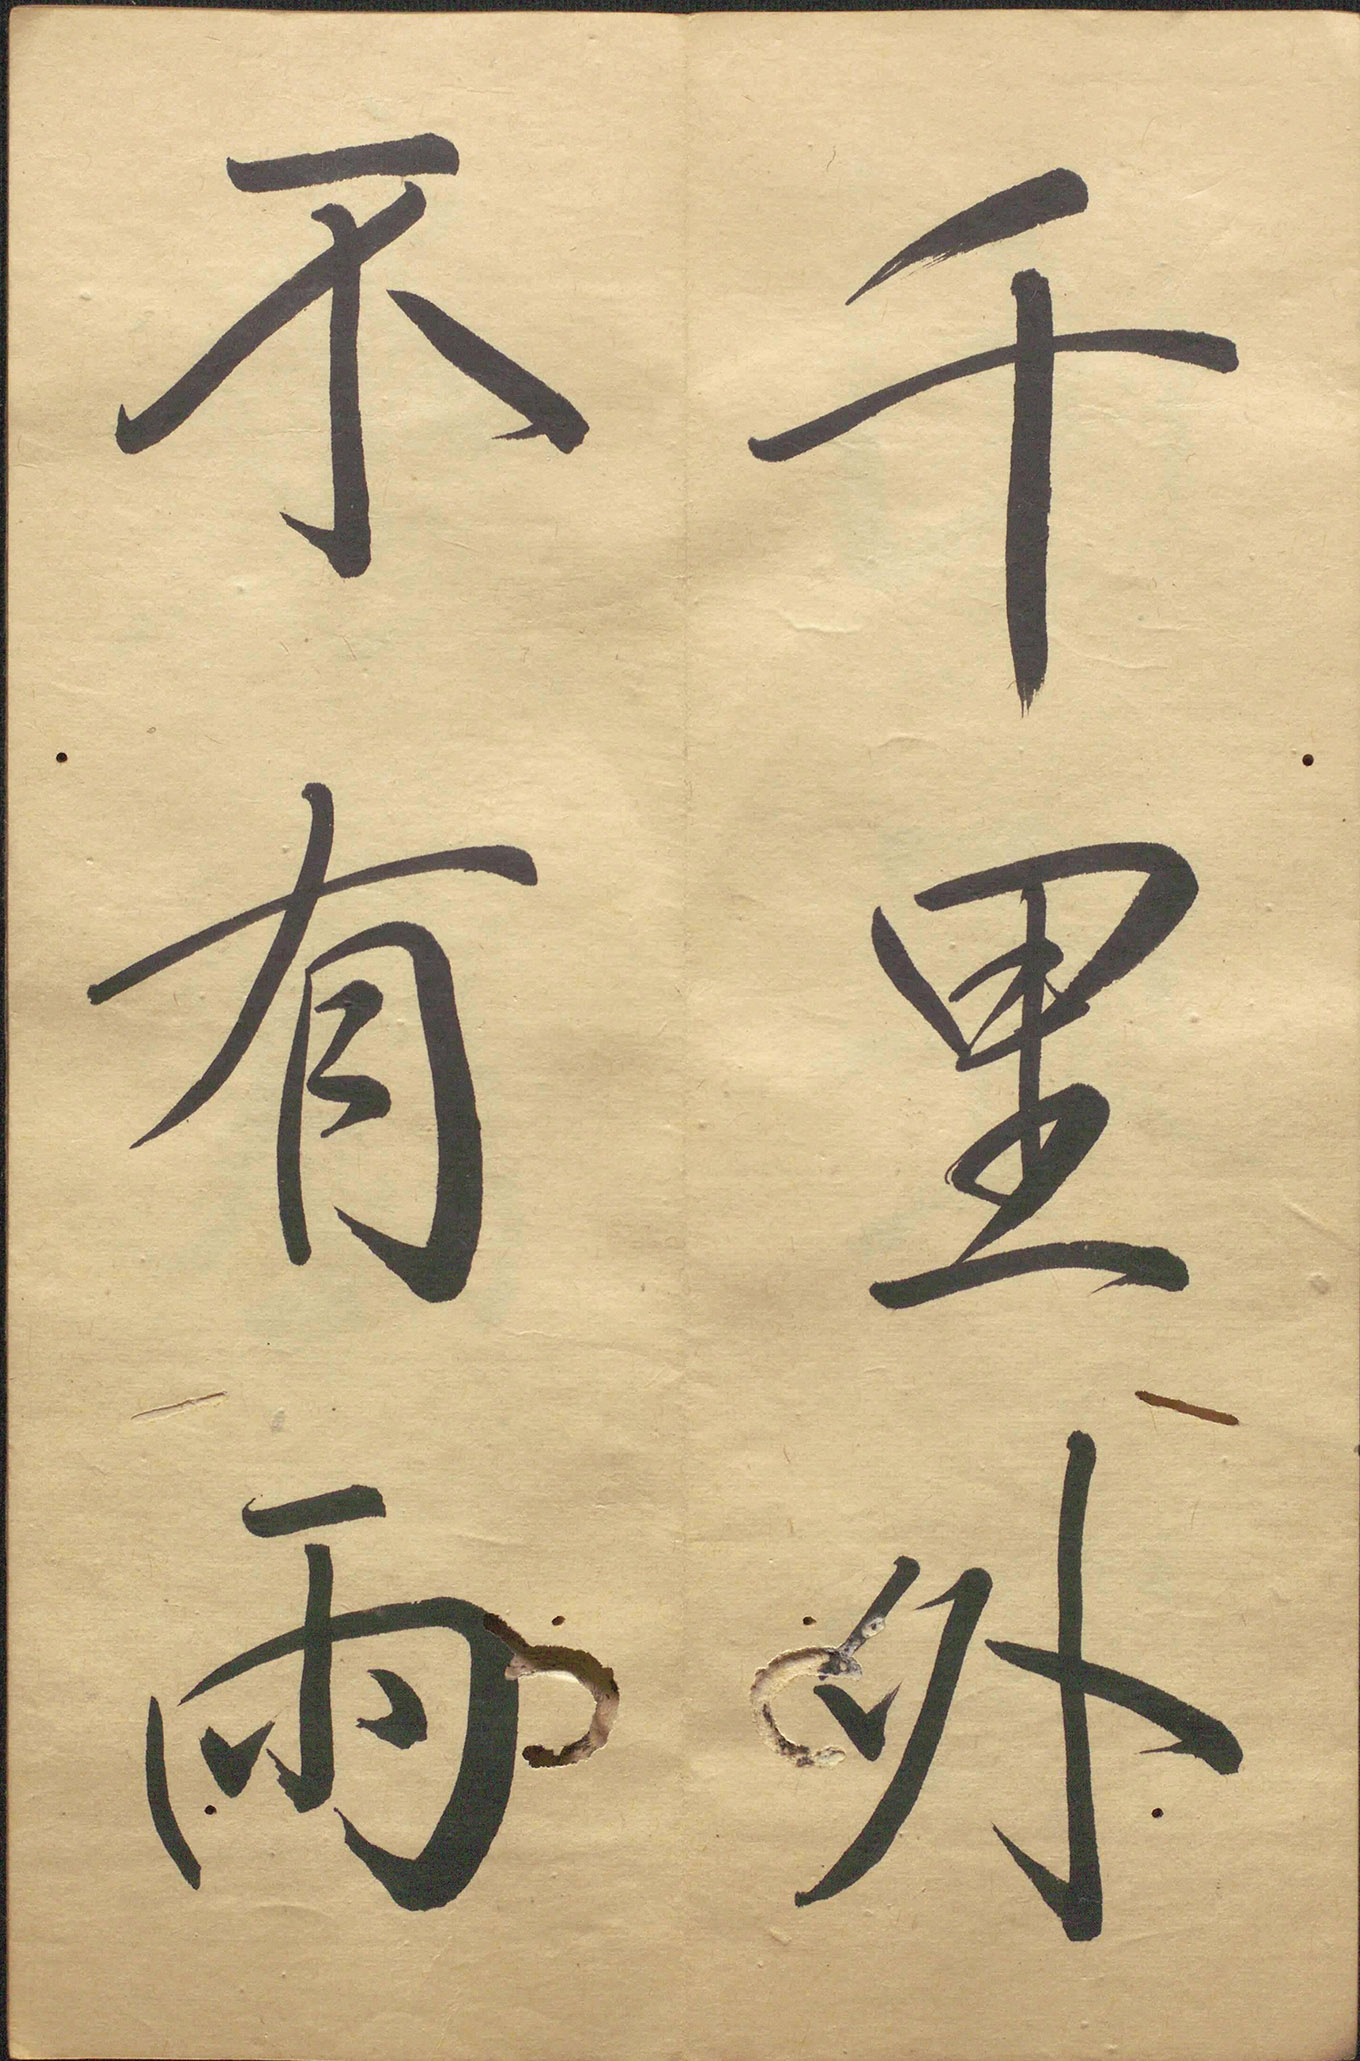 千里外
不有雨